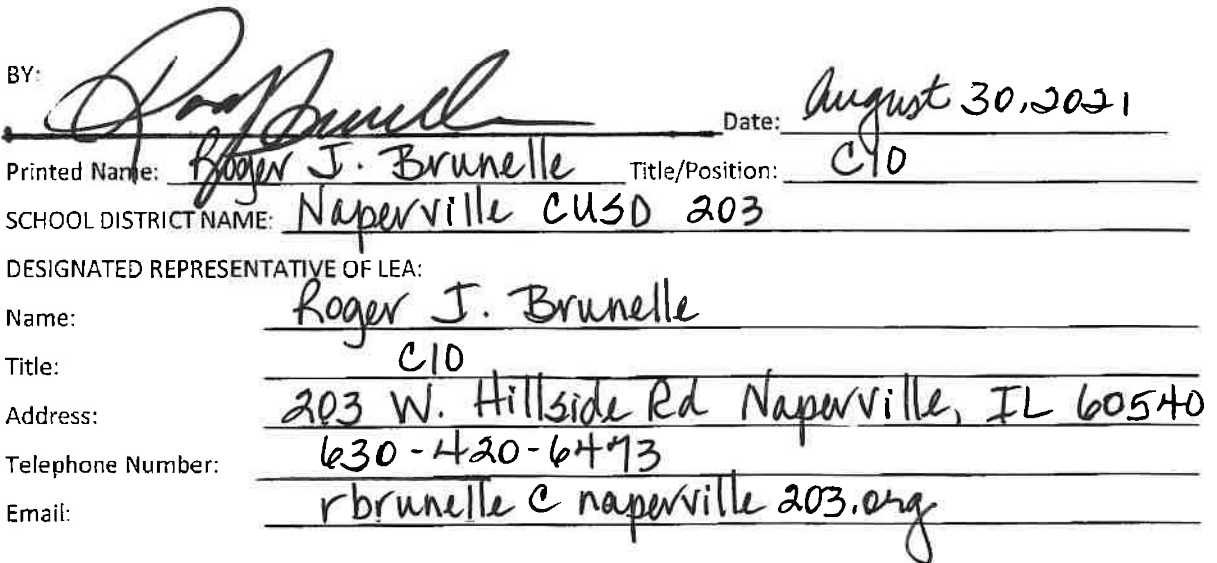 BY:
Date: August 30, 2021
Printed Name: Roger J. Brunelle Title/Position: CIO
SCHOOL DISTRICT NAME: Naperville CUSD 203
DESIGNATED REPRESENTATIVE OF LEA:
Name: Roger J. Brunelle
Title: CIO
Address: 203 W. Hillside Rd Naperville, IL 60540
Telephone Number: 630-420-6473
Email: rbrunelle @ naperville 203.org